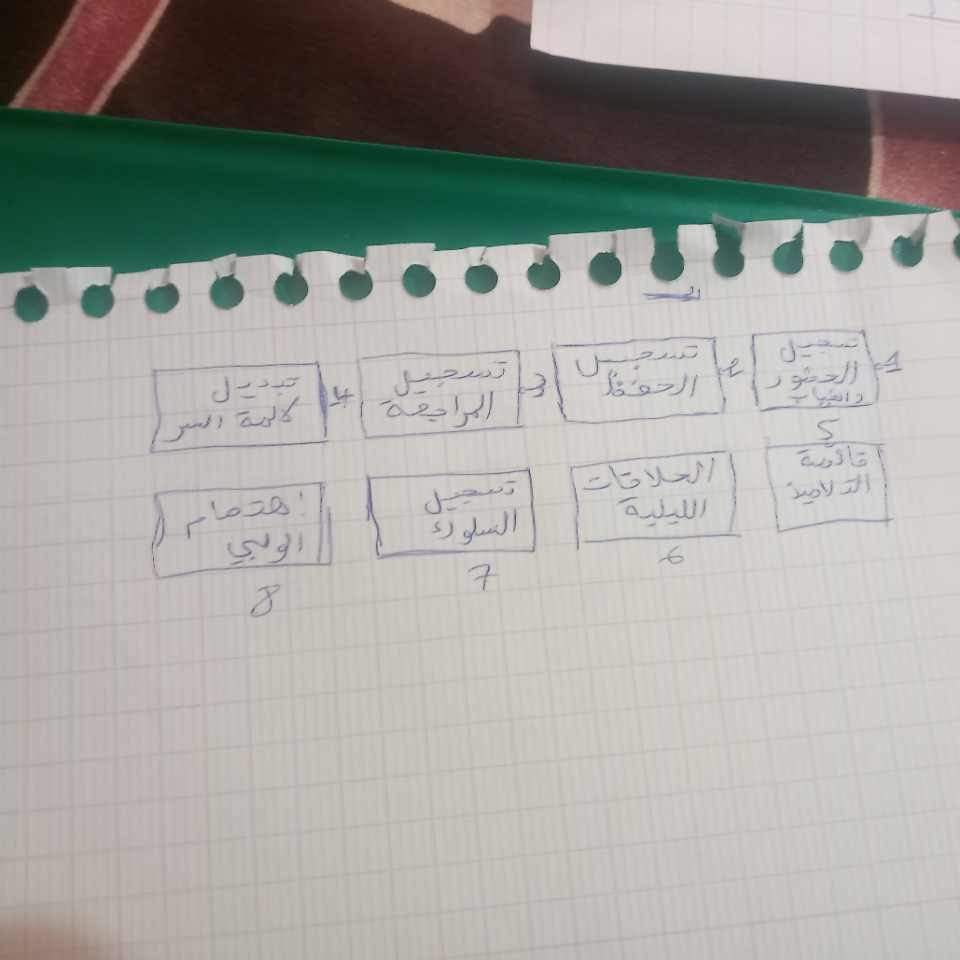 1- تسجيل
الحضور
والغياب
2- تسجيل
الحفظ
3- تسجيل
المراجعة
4- تبديل
كلمة السر
5
قائمة
التلاميذ
الحلاقات
الليلية
6
تسجيل
السلوك
7
إهتمام
الولي
8